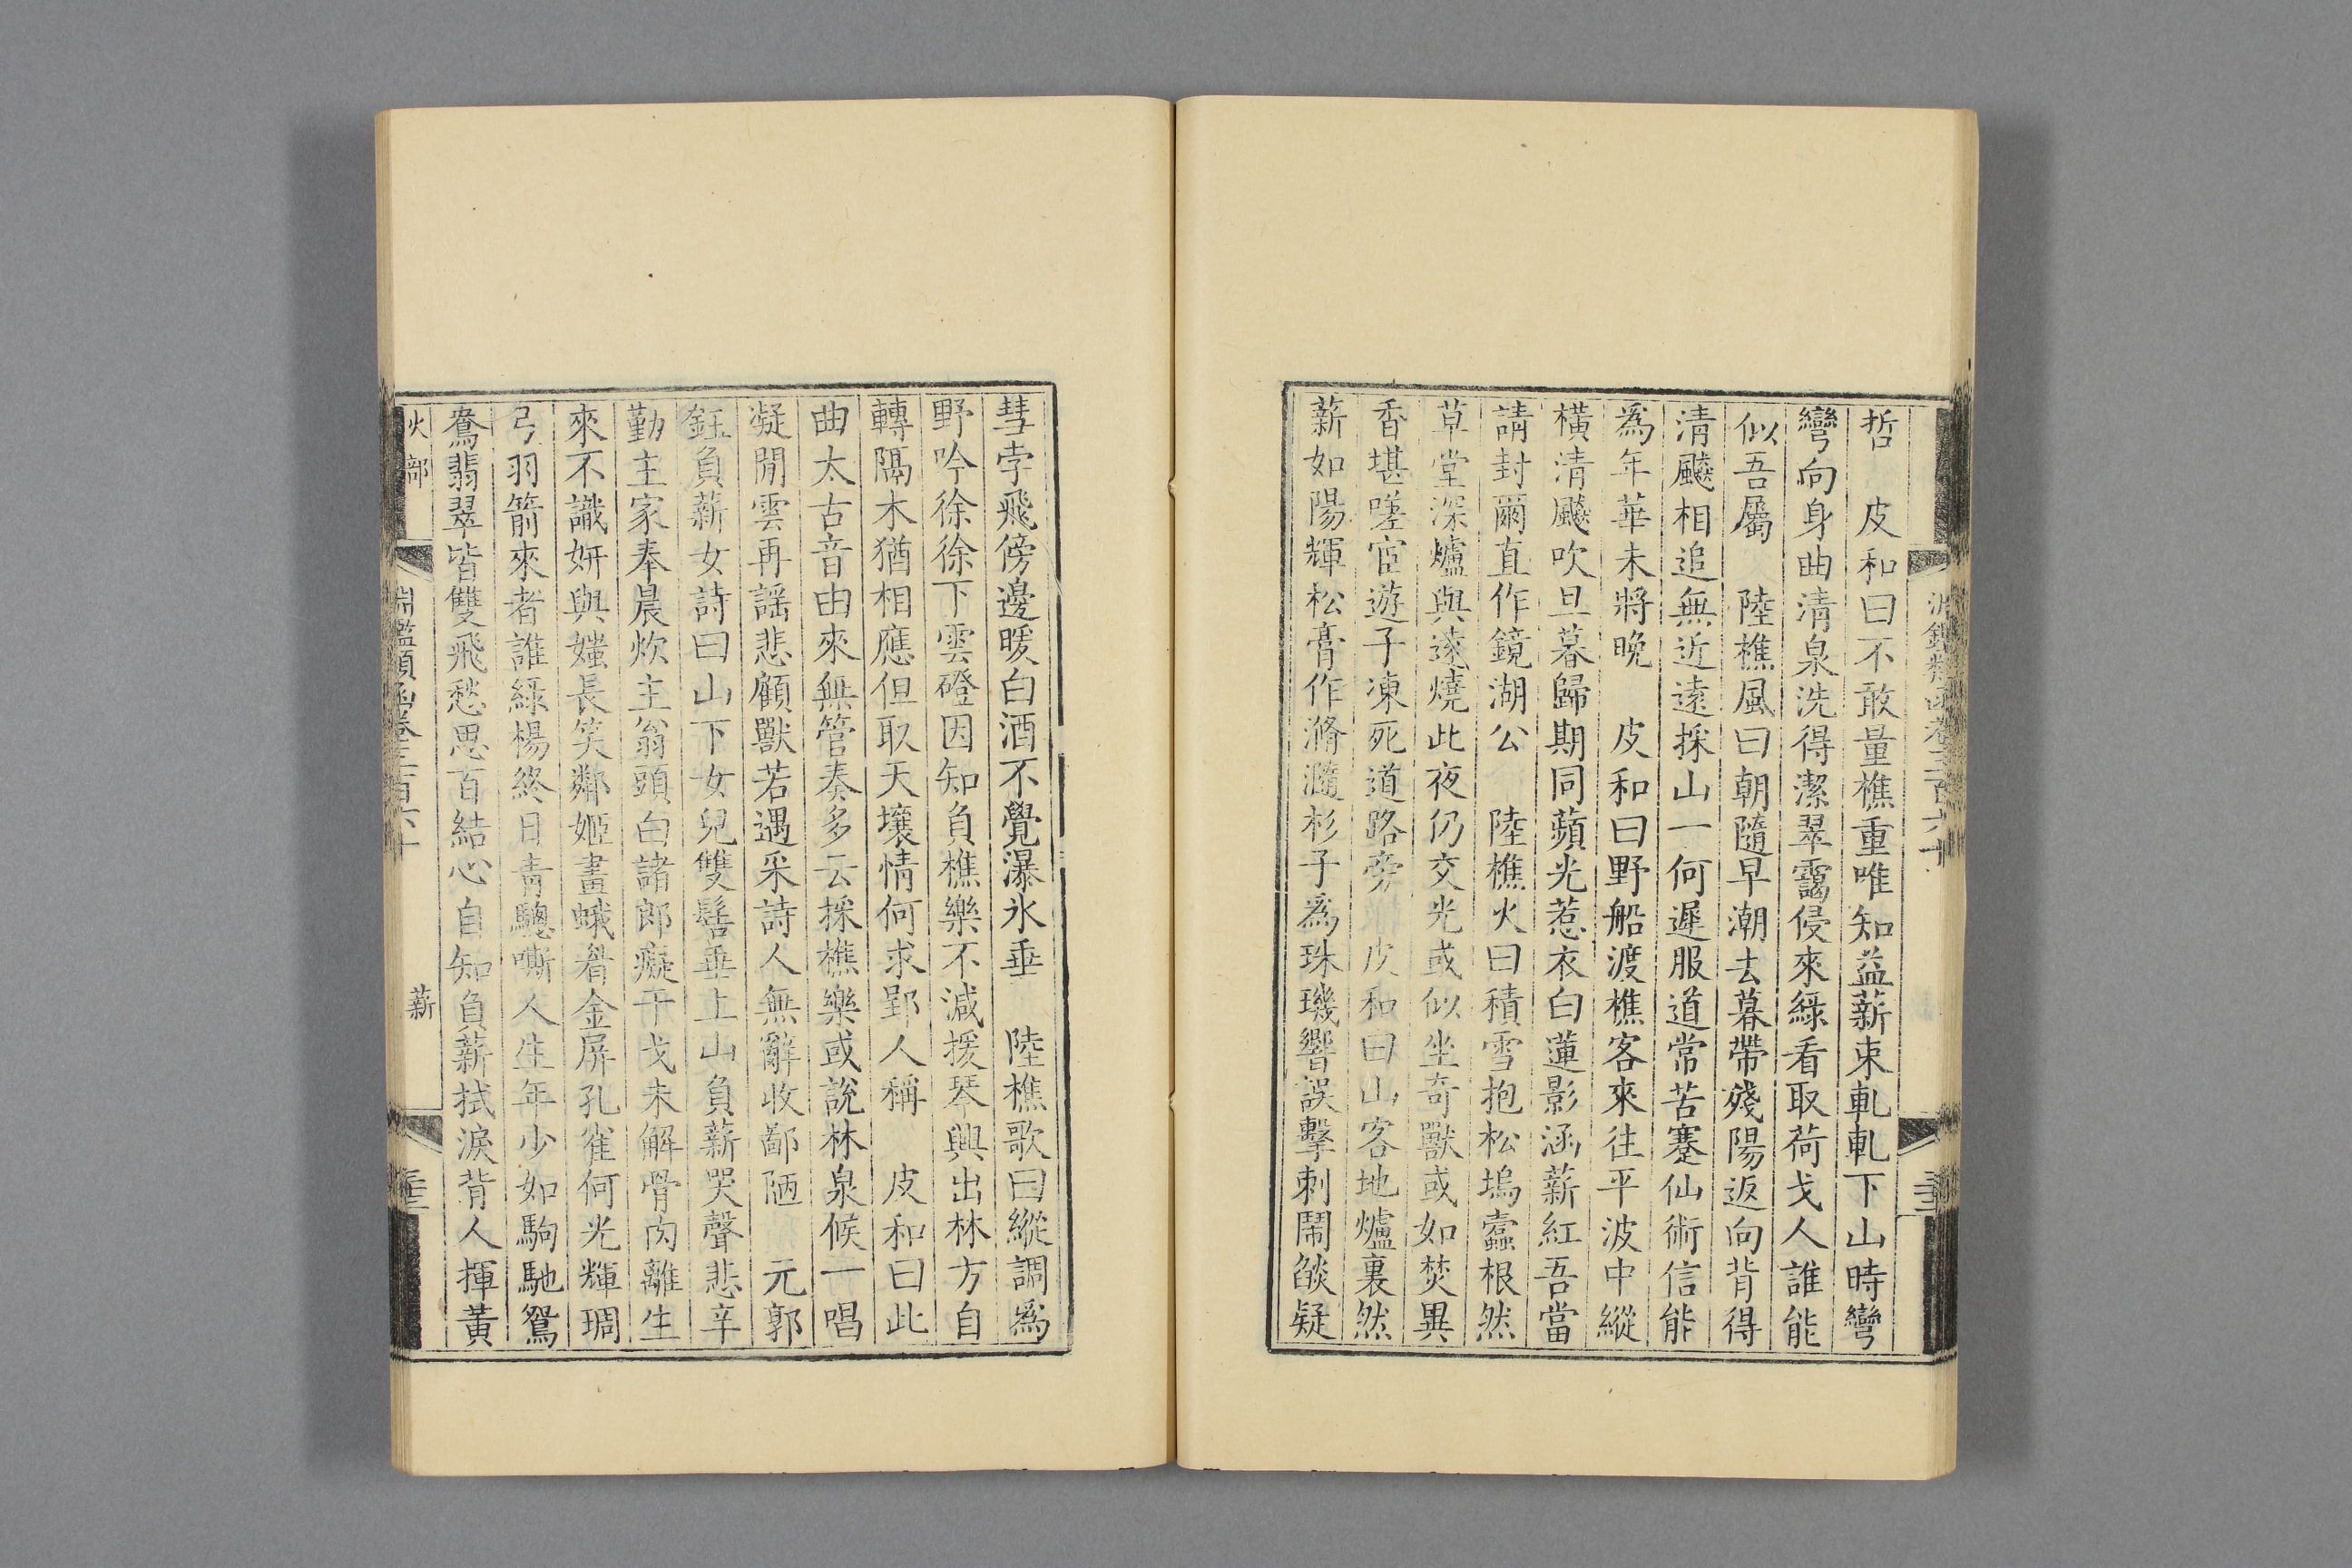 淵鑑類函卷三百六十
哲　皮和曰不敢量樵重唯知益薪束軋軋下山時彎
彎向身曲清泉洗得潔翠靄侵來綠看取荷戈人誰能
似吾屬　陸樵風曰朝隨早潮去暮帶殘陽返向背得
清飈相追無近遠採山一何遲服道常苦蹇仙術信能
為年華未將晚　皮和曰野船渡樵客來往平波中縱
橫清飈吹旦暮歸期同蘋光惹衣白蓮影涵薪紅吾當
請封爾直作鏡湖公　陸樵火曰積雪抱松塢蠹根然
草堂深爐與遠燒此夜仍交光或似坐奇獸或如焚異
香堪嗟宦遊子凍死道路旁　皮和曰山客地爐裏然
薪如陽輝松膏作滫瀡杉子為珠璣響誤擊刺鬧燄疑
彗孛飛傍邊暖白酒不覺瀑氷垂　陸樵歌曰縱調為
野吟徐徐下雲磴因知負樵樂不減援琴興出林方自
轉隔木猶相應但取天壤情何求郢人稱　皮和曰此
曲太古音由來無管奏多云採樵樂或說林泉候一唱
凝閒雲再謡悲顧獸若遇采詩人無辭收鄙陋　元郭
鈺負薪女詩曰山下女兒雙髻垂上山負薪哭聲悲辛
勤主家奉晨炊主翁頭白諸郎癡干戈未解骨肉離生
來不識妍與媸長笑鄰姬畫蛾眉金屏孔雀何光輝琱
弓羽箭來者誰綠楊終日青驄嘶人生年少如駒馳鴛
鴦翡翠皆雙飛愁思百結心自知負薪拭淚背人揮黃
火部　淵鑑類函卷三百六十　薪